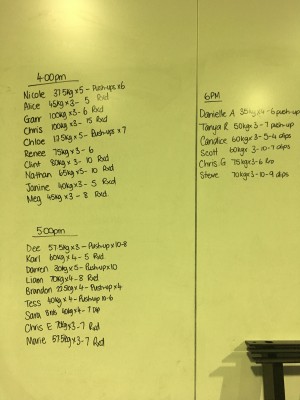 4:00pm
Nicole 37.5kg x 5 - Push-ups x 6
Alice 45kg x 3 - 5 Rxd
Garr 100kg x 3 - 6 Rxd
Chris 100kg x 3 - 15 Rxd
Chloe 17.5kg x 5 - Push-ups x 7
Renee 75kg x 3 - 6
Clint 80kg x 3 - 10 Rxd
Nathan 65kg x 5 - 10 Rxd
Janine 40kg x 3 - 5 Rxd
Meg 45kg x 3 - 8 Rxd
5:00pm
Dee 57.5kg x 3 - Push-up x 10-8
Karl 60kg x 4 - 5 Rxd
Darren 80kg x 5 - Push-up x 10
Liam 70kg x 4 - 8 Rxd
Brandon 22.5kg x 4 - Push-up x 4
Tess 40kg x 4 - Push-up 10-6
Sara 40kg x 4 - 7
Chris E 70kg x 3 - 7 Rxd
Marie 57.5kg x 3 - 7 Rxd
6PM
Danielle A 35kg x 4 - 6 push-up
Tanya R 50kg x 3 - 7 push-up
Candice 60kg x 3 - 5-4 dips
Scott 60kg x 3 - 10-7 dips
Chris G 75kg x 3 - 6
Steve 70kg x 3 - 10-9 dips